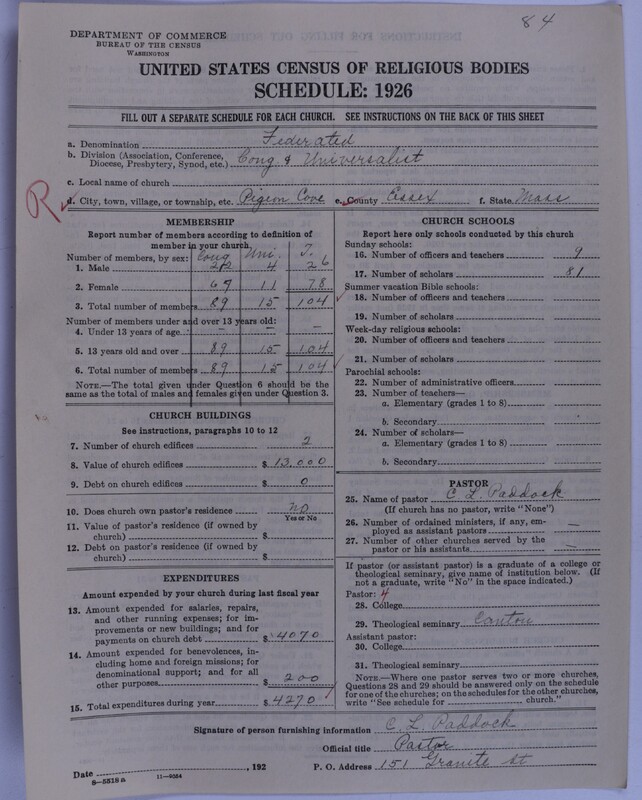 84
DEPARTMENT OF COMMERCE
BUREAU OF THE CENSUS
WASHINGTON
UNITED STATES CENSUS OF RELIGIOUS BODIES
SCHEDULE: 1926
FILL OUT A SEPARATE SCHEDULE FOR EACH CHURCH. SEE INSTRUCTIONS ON THE BACK OF THIS SHEET
a. Denomination Federated
b. Division (Association, Conference, Diocese, Presbytery, Synod, etc.) Cong & Universalist
c. Local name of church
R
d. City, town, village, or township, etc. Pigeon Cove e. County Essex f. State Mass
MEMBERSHIP
Report number of members according to definition of
member in your church.
Number of members, by sex: Cong Uni. T.
1. Male 4 26
2. Female 67 11 78
3. Total number of members 89 15 104
Number of members under and over 13 years old:
4. Under 13 years of age - - -
5. 13 years old and over 89 15 104
6. Total number of members 89 15 104
NOTE.—The total given under Question 6 should be
same as the total of males and females given under Question 3.
CHURCH BUILDINGS
See instructions, paragraphs 10 to 12
7. Number of church edifices 2
8. Value of church edifices $ 13,000
9. Debt on church edifices $ 0
10. Does church own pastor's residence No
Yes or No
11. Value of pastor's residence (if owned by
church) $
12. Debt on pastor's residence (if owned by
church) $
EXPENDITURES
Amount expended by your church during last fiscal year
13. Amount expended for salaries, repairs,
and other running expenses; for im-
provements or new buildings; and for
payments on church debt $ 4070
14. Amount expended for benevolences, in-
cluding home and foreign missions; for
denominational support; and for all
other purposes $ 200
15. Total expenditures during year $ 4270
CHURCH SCHOOLS
Report here only schools conducted by this church
Sunday schools:
16. Number of officers and teachers 9
17. Number of scholars 81
Summer vacation Bible schools:
18. Number of officers and teachers
19. Number of scholars
Week-day religious schools:
20. Number of officers and teachers
21. Number of scholars
Parochial schools:
22. Number of administrative officers
23. Number of teachers—
a. Elementary (grades 1 to 8)
b. Secondary
24. Number of scholars—
a. Elementary (grades 1 to 8)
b. Secondary
PASTOR
25. Name of pastor C L Paddock
(If church has no pastor, write "None")
26. Number of ordained ministers, if any, em-
ployed as assistant pastors —
27. Number of other churches served by the
pastor or his assistants —
If pastor (or assistant pastor) is a graduate of a college or
theological seminary, give name of institution below. (If
not a graduate, write "No" in the space indicated.)
Pastor: 4
28. College
29. Theological seminary Canton
Assistant pastor:
30. College
31. Theological seminary
NOTE.—Where one pastor serves two or more churches,
Questions 28 and 29 should be answered only on the schedule
for one of the churches; on the schedules for the other churches,
write "See schedule for church."
Signature of person furnishing information C L Paddock
Official title Pastor
Date , 192 P. O. Address 151 Granite St
8—5518 a 11—9054